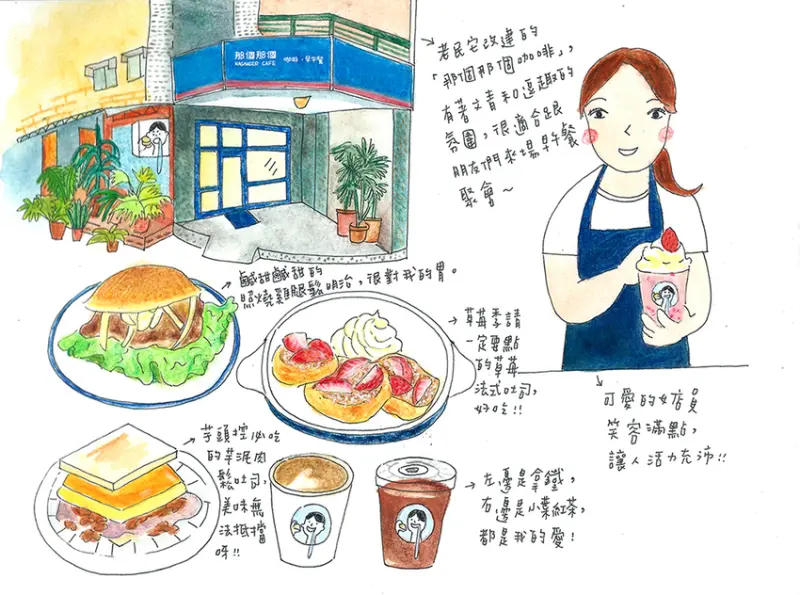 那個那個
NAGNEER CAFE
咖啡．早午餐
老民宅改建的
「那個那個咖啡」，
有著文青和逗趣的
氛圍，很適合跟
朋友們來場早午餐
聚會～
鹹甜鹹甜的
照燒雞腿鬆明治，很對我的胃。
草莓季請
一定要點
的草莓
法式吐司，
好吃!!
可愛的女店員
笑容滿點，
讓人活力充沛!!
芋頭控必吃
的芋泥肉
鬆吐司，
美味無
法抵擋
呀!!
左邊是拿鐵，
右邊是小葉紅茶，
都是我的愛！